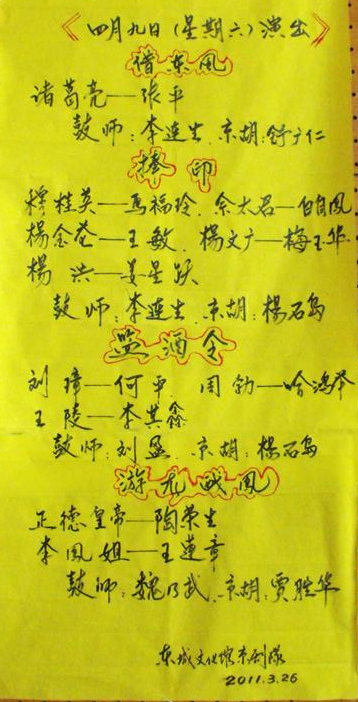 《四月九日(星期六)演出》
借东风
诸葛亮——张平
鼓师:李连生、京胡:舒广仁
捧印
穆桂英——馬福玲、佘太君——白自凤
楊金花——王敏、楊文广——梅玉华
楊洪——姜星跃
鼓师:李连生、京胡:楊石岛
监酒令
刘璋——何平 周勃——哈鸿举
王陵——李其鑫
鼓师:刘盛、京胡:楊石岛
游龙戏鳳
正德皇帝——陶荣生
李鳳姐——王蓮章
鼓师:魏乃武、京胡:贾胜华
东城文化馆京剧队
2011.3.26